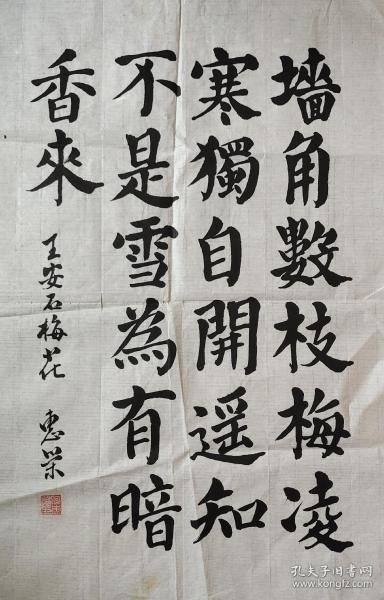 墻角數枝梅凌
寒獨自開遥知
不是雪為有暗
香來
王安石梅花 惠榮
孔夫子旧书网
www.kongfz.com